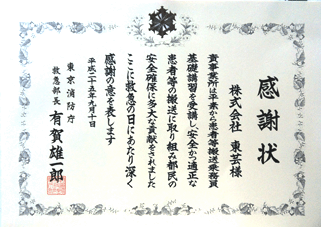 感謝状
株式会社 東芸様
貴事業所は平素から患者等搬送乗務員
基礎講習を受講し安全かつ適正な
患者等の搬送に取り組み都民の
安全確保に多大な貢献をされました
ここに救急の日にあたり深く
感謝の意を表します
平成二十五年九月十日
東京消防庁
救急部長 有賀雄一郎